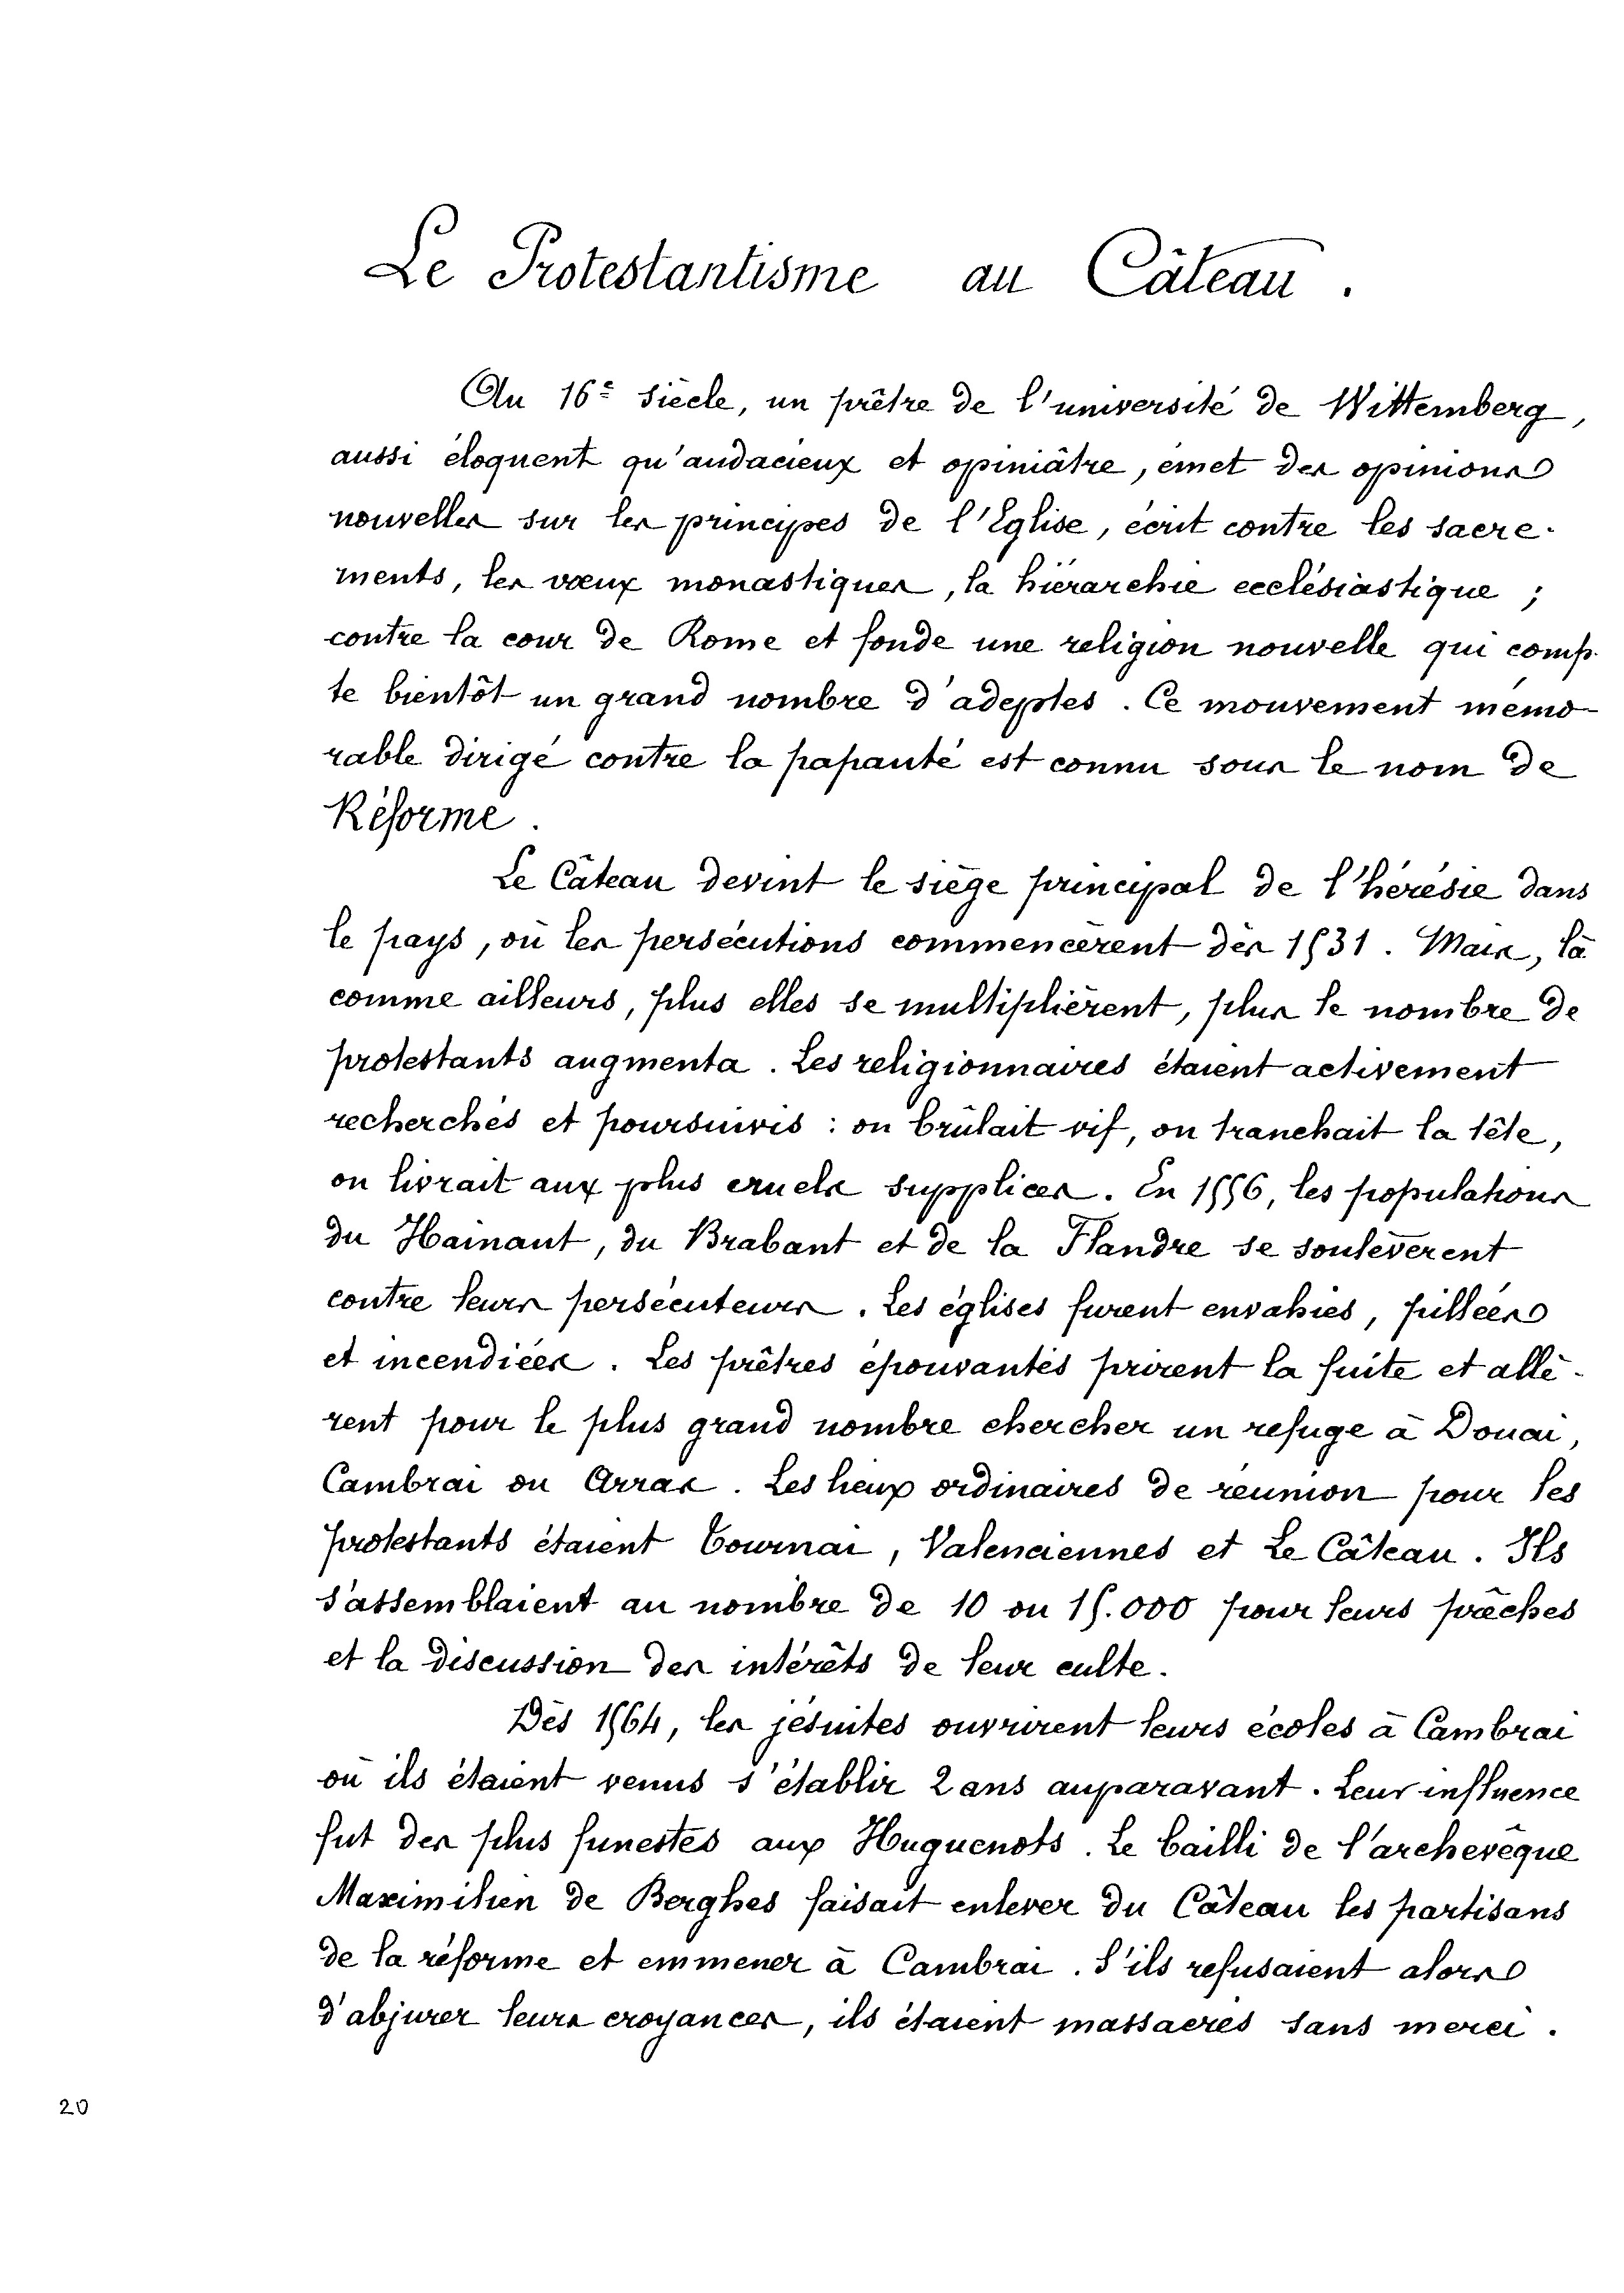 Le Protestantisme au Câteau.
Au 16e siècle, un prêtre de l'université de Wittemberg,
aussi éloquent qu'audacieux et opiniâtre, émet des opinions
nouvelles sur les principes de l'Eglise, écrit contre les sacre-
ments, les vœux monastiques, la hiérarchie ecclésiastique ;
contre la cour de Rome et fonde une religion nouvelle qui comp-
te bientôt un grand nombre d'adeptes. Ce mouvement mémo-
rable dirigé contre la papauté est connu sous le nom de
Réforme.
Le Câteau devint le siège principal de l'hérésie dans
le pays, où les persécutions commencèrent dès 1531. Mais, là
comme ailleurs, plus elles se multiplièrent, plus le nombre de
protestants augmenta. Les religionnaires étaient activement
recherchés et poursuivis : on brûlait vif, on tranchait la tête,
on livrait aux plus cruels supplices. En 1556, les populations
du Hainaut, du Brabant et de la Flandre se soulevèrent
contre leurs persécuteurs. Les églises furent envahies, pillées
et incendiées. Les prêtres épouvantés prirent la fuite et allè-
rent pour le plus grand nombre chercher un refuge à Douai,
Cambrai ou Arras. Les lieux ordinaires de réunion pour les
protestants étaient Tournai, Valenciennes et Le Câteau. Ils
s'assemblaient au nombre de 10 ou 15.000 pour leurs prêches
et la discussion des intérêts de leur culte.
Dès 1564, les jésuites ouvrirent leurs écoles à Cambrai
où ils étaient venus s'établir 2 ans auparavant. Leur influence
fut des plus funestes aux Huguenots. Le bailli de l'archevêque
Maximilien de Berghes faisait enlever du Câteau les partisans
de la réforme et emmener à Cambrai. S'ils refusaient alors
d'abjurer leurs croyances, ils étaient massacrés sans merci.
20